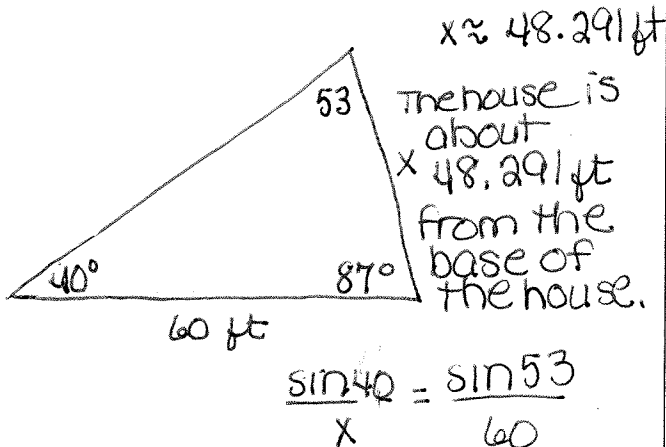 x ≈ 48.291 ft
53
The house is
about
x 48.291 ft
from the
base of
the house.
40° 87°
60 ft
sin 40 = sin 53
x 60